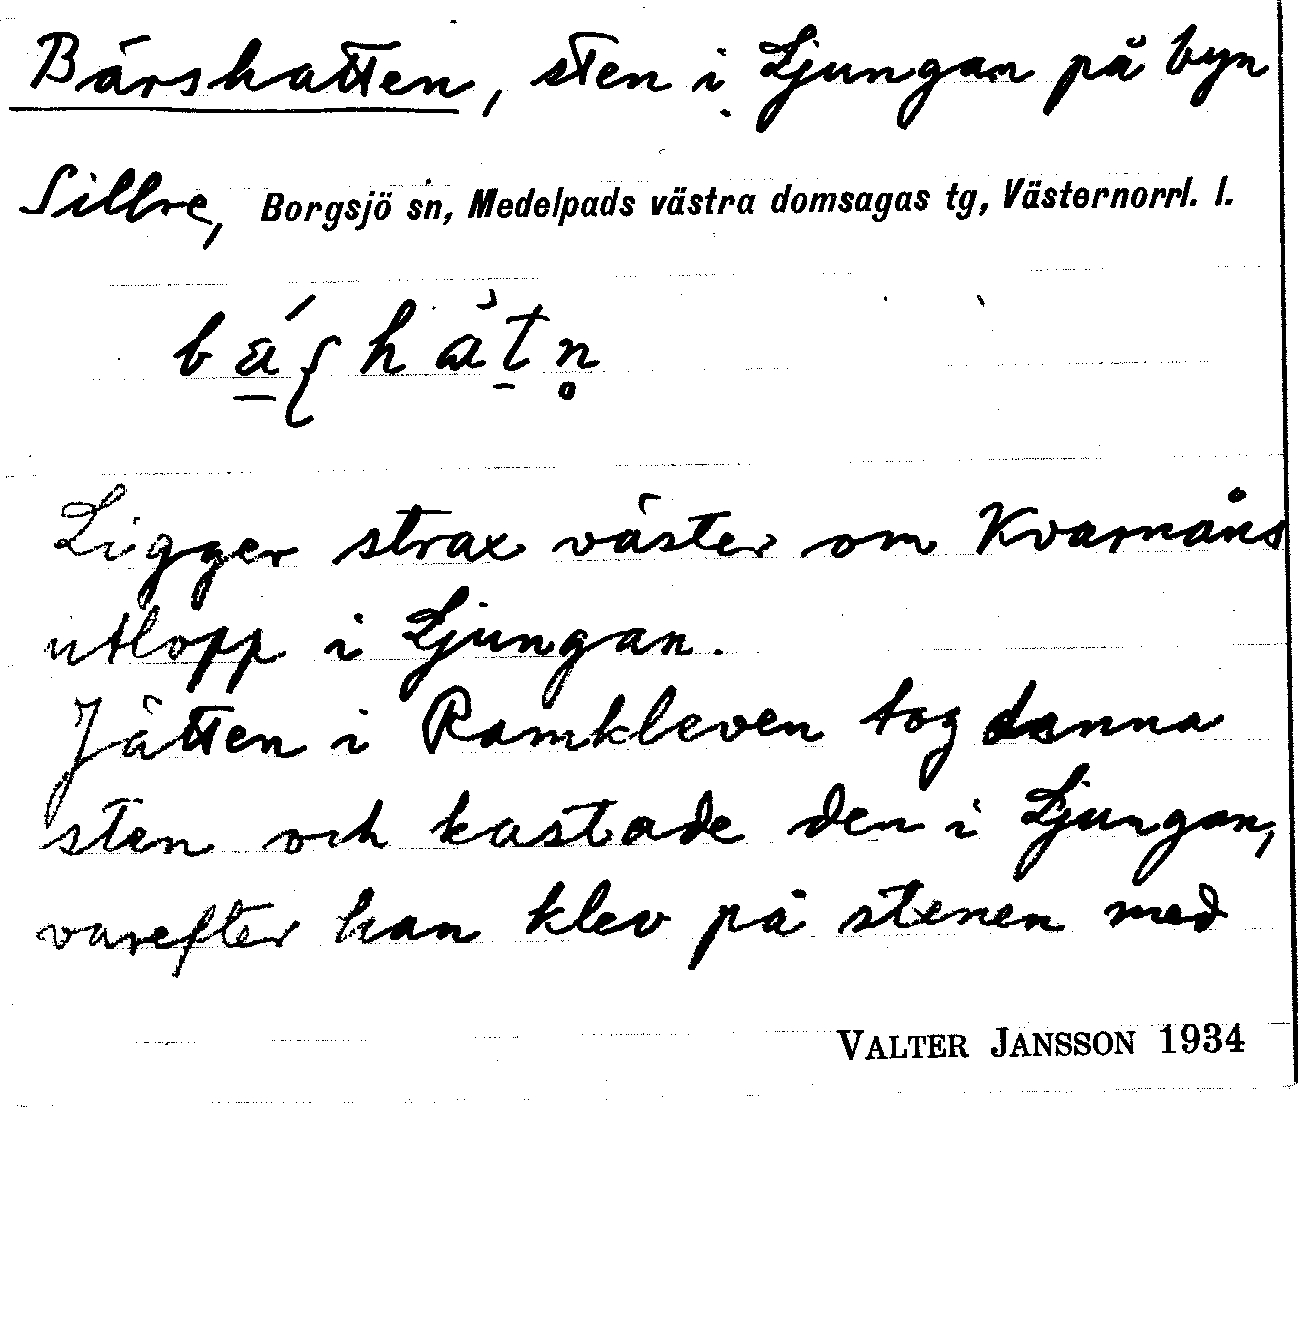 Bärshatten, sten i Ljungan på byn
Sillre, Borgsjö sn, Medelpads västra domsagas tg, Västernorrl. l.
Ligger strax väster om Kvarnåns
utlopp i Ljungan.
Jätten i Ramkleven tog denna
sten och kastade den i Ljungan,
varefter han klev på stenen med
VALTER JANSSON 1934